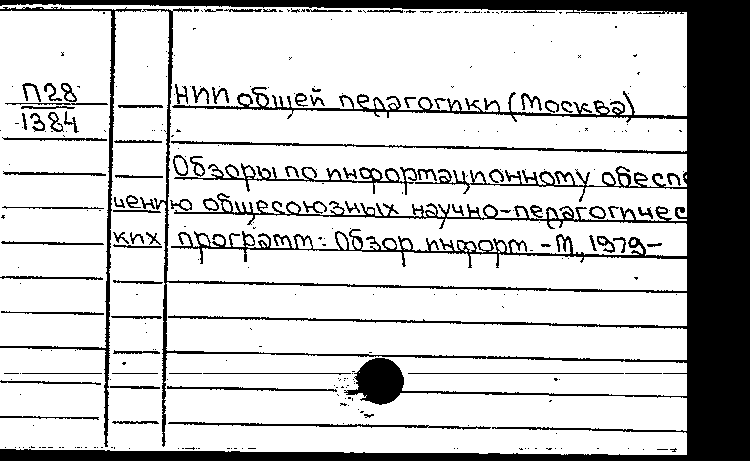 П28
1384
НИИ общей педагогики (Москва)
Обзоры по информационному обеспе
чению общесоюзных научно-педагогичес
ких программ: Обзор. информ. - М., 1979-